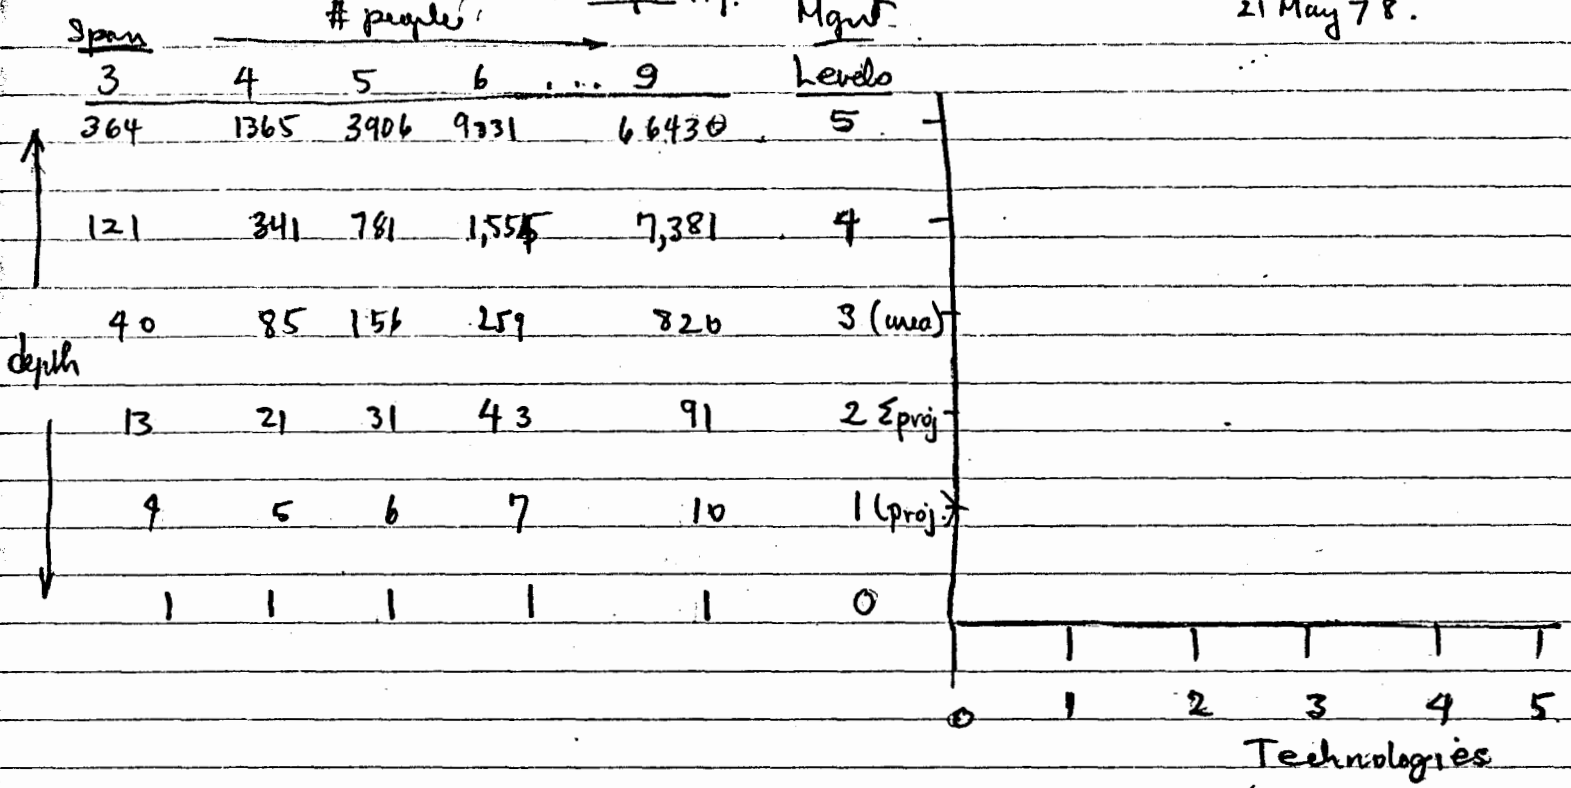 21 May 78.
Span # people Mgmt
3 4 5 6 .... 9 Levels
364 1365 3906 9331 66430 5
121 341 781 1,555 7,381 4
40 85 156 259 820 3 (area)
depth
13 21 31 43 91 2 Σproj
4 5 6 7 10 1 (proj.)
1 1 1 1 1 0
0 1 2 3 4 5
Technologies